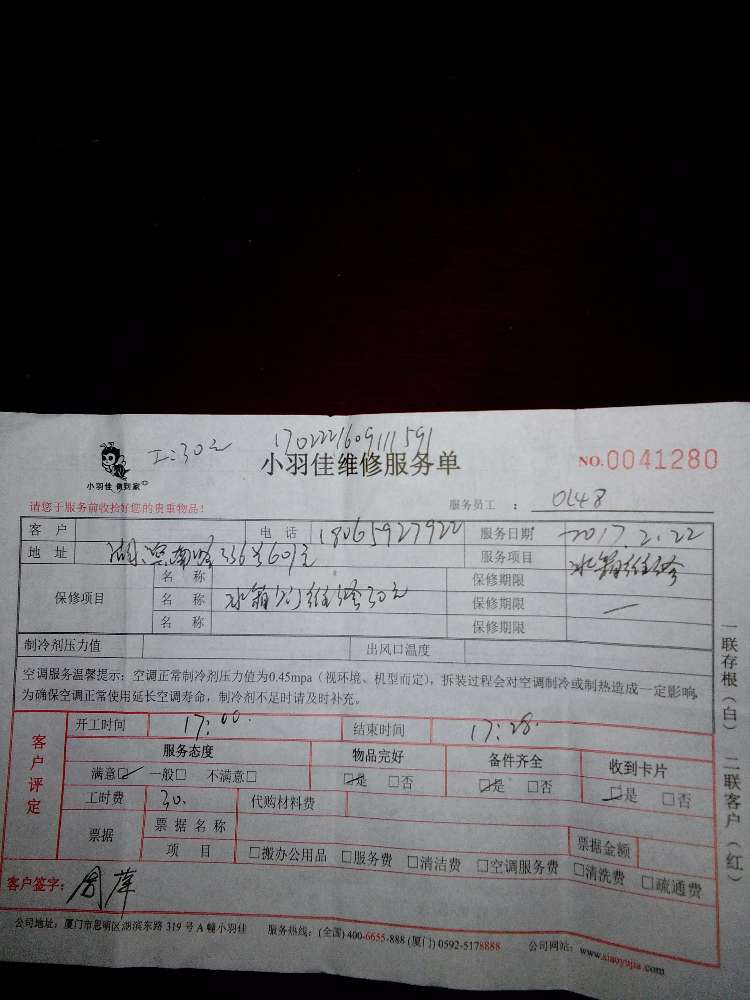 工:30元 1702221609111591
小羽佳 佣到家
小羽佳维修服务单 NO.0041280
请您于服务前收拾好您的贵重物品! 服务员工 : 0148
客 户 电 话 18065927922 服务日期 2017.2.22
地 址 湖滨南路336号601室 服务项目 冰箱维修
保修项目
名 称 保修期限
名 称 冰箱门维修30元 保修期限 —
名 称 保修期限
制冷剂压力值 出风口温度
空调服务温馨提示:空调正常制冷剂压力值为0.45mpa(视环境、机型而定),拆装过程会对空调制冷或制热造成一定影响,
为确保空调正常使用延长空调寿命,制冷剂不足时请及时补充。
客户评定
开工时间 17:00. 结束时间 17:28.
服务态度 物品完好 备件齐全 收到卡片
满意☑ 一般□ 不满意□ ☑是 □否 ☑是 □否 ☑是 □否
工时费 30. 代购材料费
票据 票据名称 票据金额
项 目 □搬办公用品 □服务费 □清洁费 □空调服务费 □清洗费 □疏通费
客户签字:
公司地址:厦门市思明区湖滨东路 319 号 A 幢小羽佳 服务热线:(全国) 400-6655-888 (厦门) 0592-5178888 公司网站:www.xiaoyujia.com
一联存根(白) 二联客户(红)